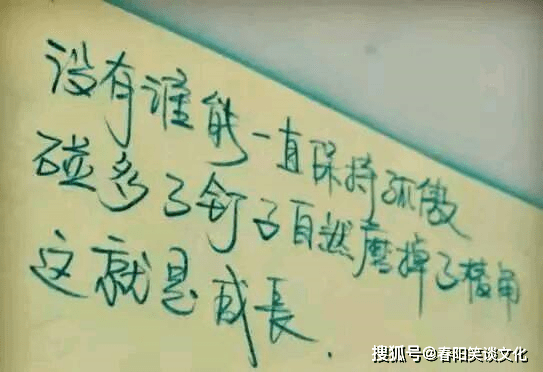 没有谁能一直保持孤傲
碰多了钉子自然磨掉了棱角
这就是成長.
搜狐号@春阳笑谈文化